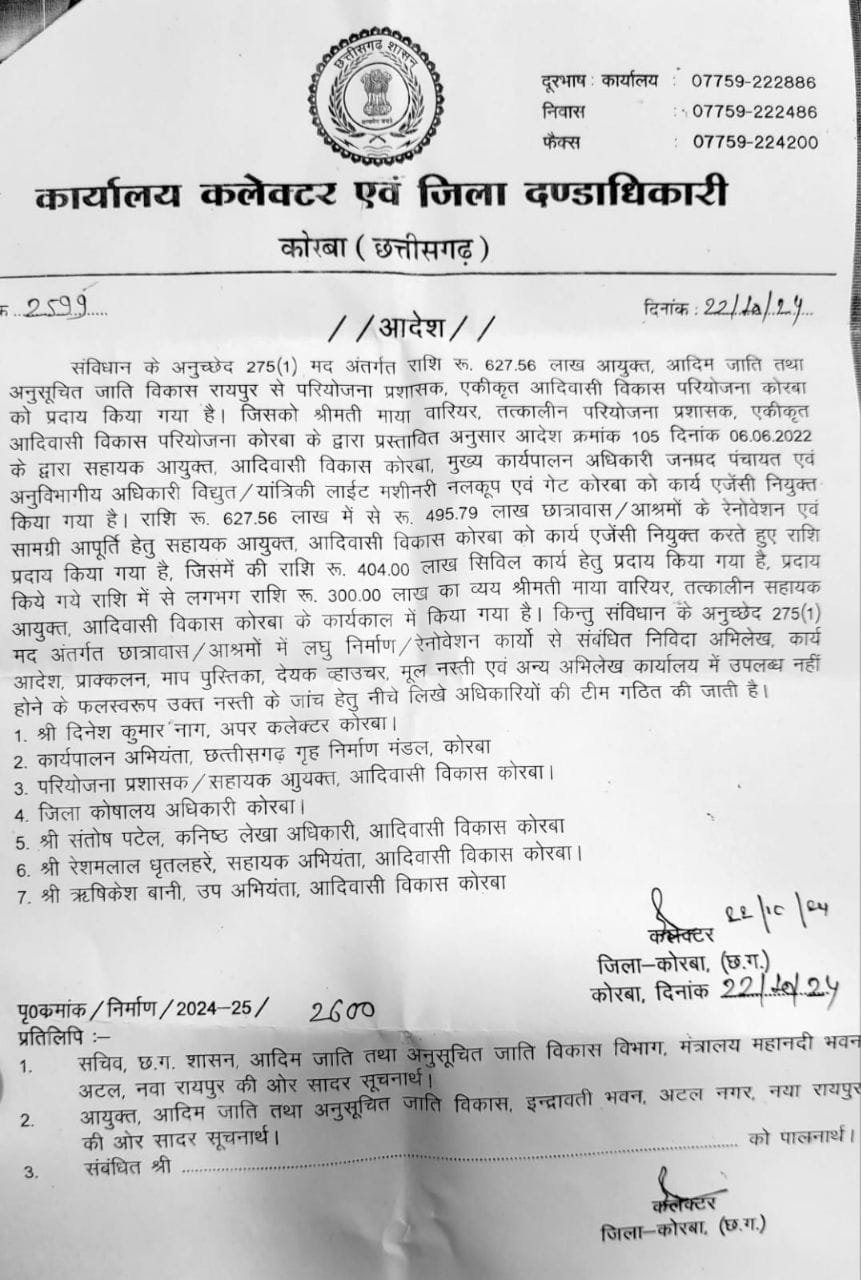 छत्तीसगढ़ शासन
दूरभाष : कार्यालय : 07759-222886
निवास : 07759-222486
फैक्स : 07759-224200
कार्यालय कलेक्टर एवं जिला दण्डाधिकारी
कोरबा ( छत्तीसगढ़ )
क ..2599.... दिनांक : 22/10/24...
//आदेश//
संविधान के अनुच्छेद 275(1) मद अंतर्गत राशि रू. 627.56 लाख आयुक्त, आदिम जाति तथा
अनुसूचित जाति विकास रायपुर से परियोजना प्रशासक, एकीकृत आदिवासी विकास परियोजना कोरबा
को प्रदाय किया गया है। जिसको श्रीमती माया वारियर, तत्कालीन परियोजना प्रशासक, एकीकृत
आदिवासी विकास परियोजना कोरबा के द्वारा प्रस्तावित अनुसार आदेश क्रमांक 105 दिनांक 06.06.2022
के द्वारा सहायक आयुक्त, आदिवासी विकास कोरबा, मुख्य कार्यपालन अधिकारी जनपद पंचायत एवं
अनुविभागीय अधिकारी विद्युत/यांत्रिकी लाईट मशीनरी नलकूप एवं गेट कोरबा को कार्य एजेंसी नियुक्त
किया गया है। राशि रू. 627.56 लाख में से रू. 495.79 लाख छात्रावास/आश्रमों के रेनोवेशन एवं
सामग्री आपूर्ति हेतु सहायक आयुक्त, आदिवासी विकास कोरबा को कार्य एजेंसी नियुक्त करते हुए राशि
प्रदाय किया गया है, जिसमें की राशि रू. 404.00 लाख सिविल कार्य हेतु प्रदाय किया गया है, प्रदाय
किये गये राशि में से लगभग राशि रू. 300.00 लाख का व्यय श्रीमती माया वारियर, तत्कालीन सहायक
आयुक्त, आदिवासी विकास कोरबा के कार्यकाल में किया गया है। किन्तु संविधान के अनुच्छेद 275(1)
मद अंतर्गत छात्रावास/आश्रमों में लघु निर्माण/रेनोवेशन कार्यो से संबंधित निविदा अभिलेख, कार्य
आदेश, प्राक्कलन, माप पुस्तिका, देयक व्हाउचर, मूल नस्ती एवं अन्य अभिलेख कार्यालय में उपलब्ध नहीं
होने के फलस्वरूप उक्त नस्ती के जांच हेतु नीचे लिखे अधिकारियों की टीम गठित की जाती है।
1. श्री दिनेश कुमार नाग, अपर कलेक्टर कोरबा।
2. कार्यपालन अभियंता, छत्तीसगढ़ गृह निर्माण मंडल, कोरबा
3. परियोजना प्रशासक/सहायक आयुक्त, आदिवासी विकास कोरबा।
4. जिला कोषालय अधिकारी कोरबा।
5. श्री संतोष पटेल, कनिष्ठ लेखा अधिकारी, आदिवासी विकास कोरबा
6. श्री रेशमलाल धृतलहरें, सहायक अभियंता, आदिवासी विकास कोरबा।
7. श्री ऋषिकेश बानी, उप अभियंता, आदिवासी विकास कोरबा
22/10/24
कलेक्टर
जिला–कोरबा, (छ.ग.)
कोरबा, दिनांक 22/10/24
पृ0कमांक/निर्माण/2024-25/ 2600
प्रतिलिपि :–
1. सचिव, छ.ग. शासन, आदिम जाति तथा अनुसूचित जाति विकास विभाग, मंत्रालय महानदी भवन
अटल, नवा रायपुर की ओर सादर सूचनार्थ।
2. आयुक्त, आदिम जाति तथा अनुसूचित जाति विकास, इन्द्रावती भवन, अटल नगर, नया रायपुर
की ओर सादर सूचनार्थ।
3. संबंधित श्री ........................................ को पालनार्थ।
कलेक्टर
जिला–कोरबा, (छ.ग.)